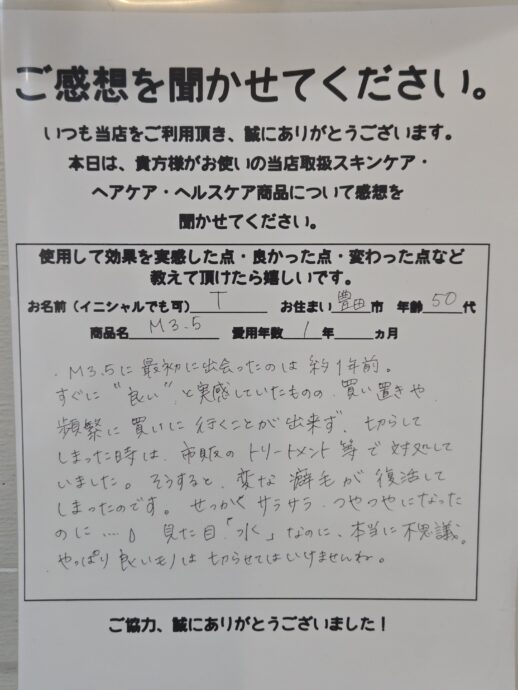 ご感想を聞かせてください。
いつも当店をご利用頂き、誠にありがとうございます。
本日は、貴方様がお使いの当店取扱スキンケア・
ヘアケア・ヘルスケア商品について感想を
聞かせてください。
使用して効果を実感した点・良かった点・変わった点など
教えて頂けたら嬉しいです。
お名前(イニシャルでも可) T お住まい 豊田 市 年齢 50 代
商品名 M3.5 愛用年数 1 年 ヵ月
・M3.5に最初に出会ったのは約1年前。
すぐに"良い"と実感していたものの、買い置きや
頻繁に買いに行くことが出来ず、切らして
しまった時は、市販のトリートメント等で対処して
いました。そうすると、変な癖毛が復活して
しまったのです。せっかくサラサラ・つやつやになった
のに…。見た目「水」なのに、本当に不思議。
やっぱり良いモノは切らせてはいけませんね。
ご協力、誠にありがとうございました!